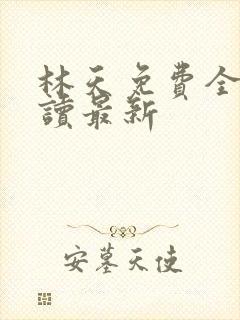 林天免費全
讀最新
安墓天使